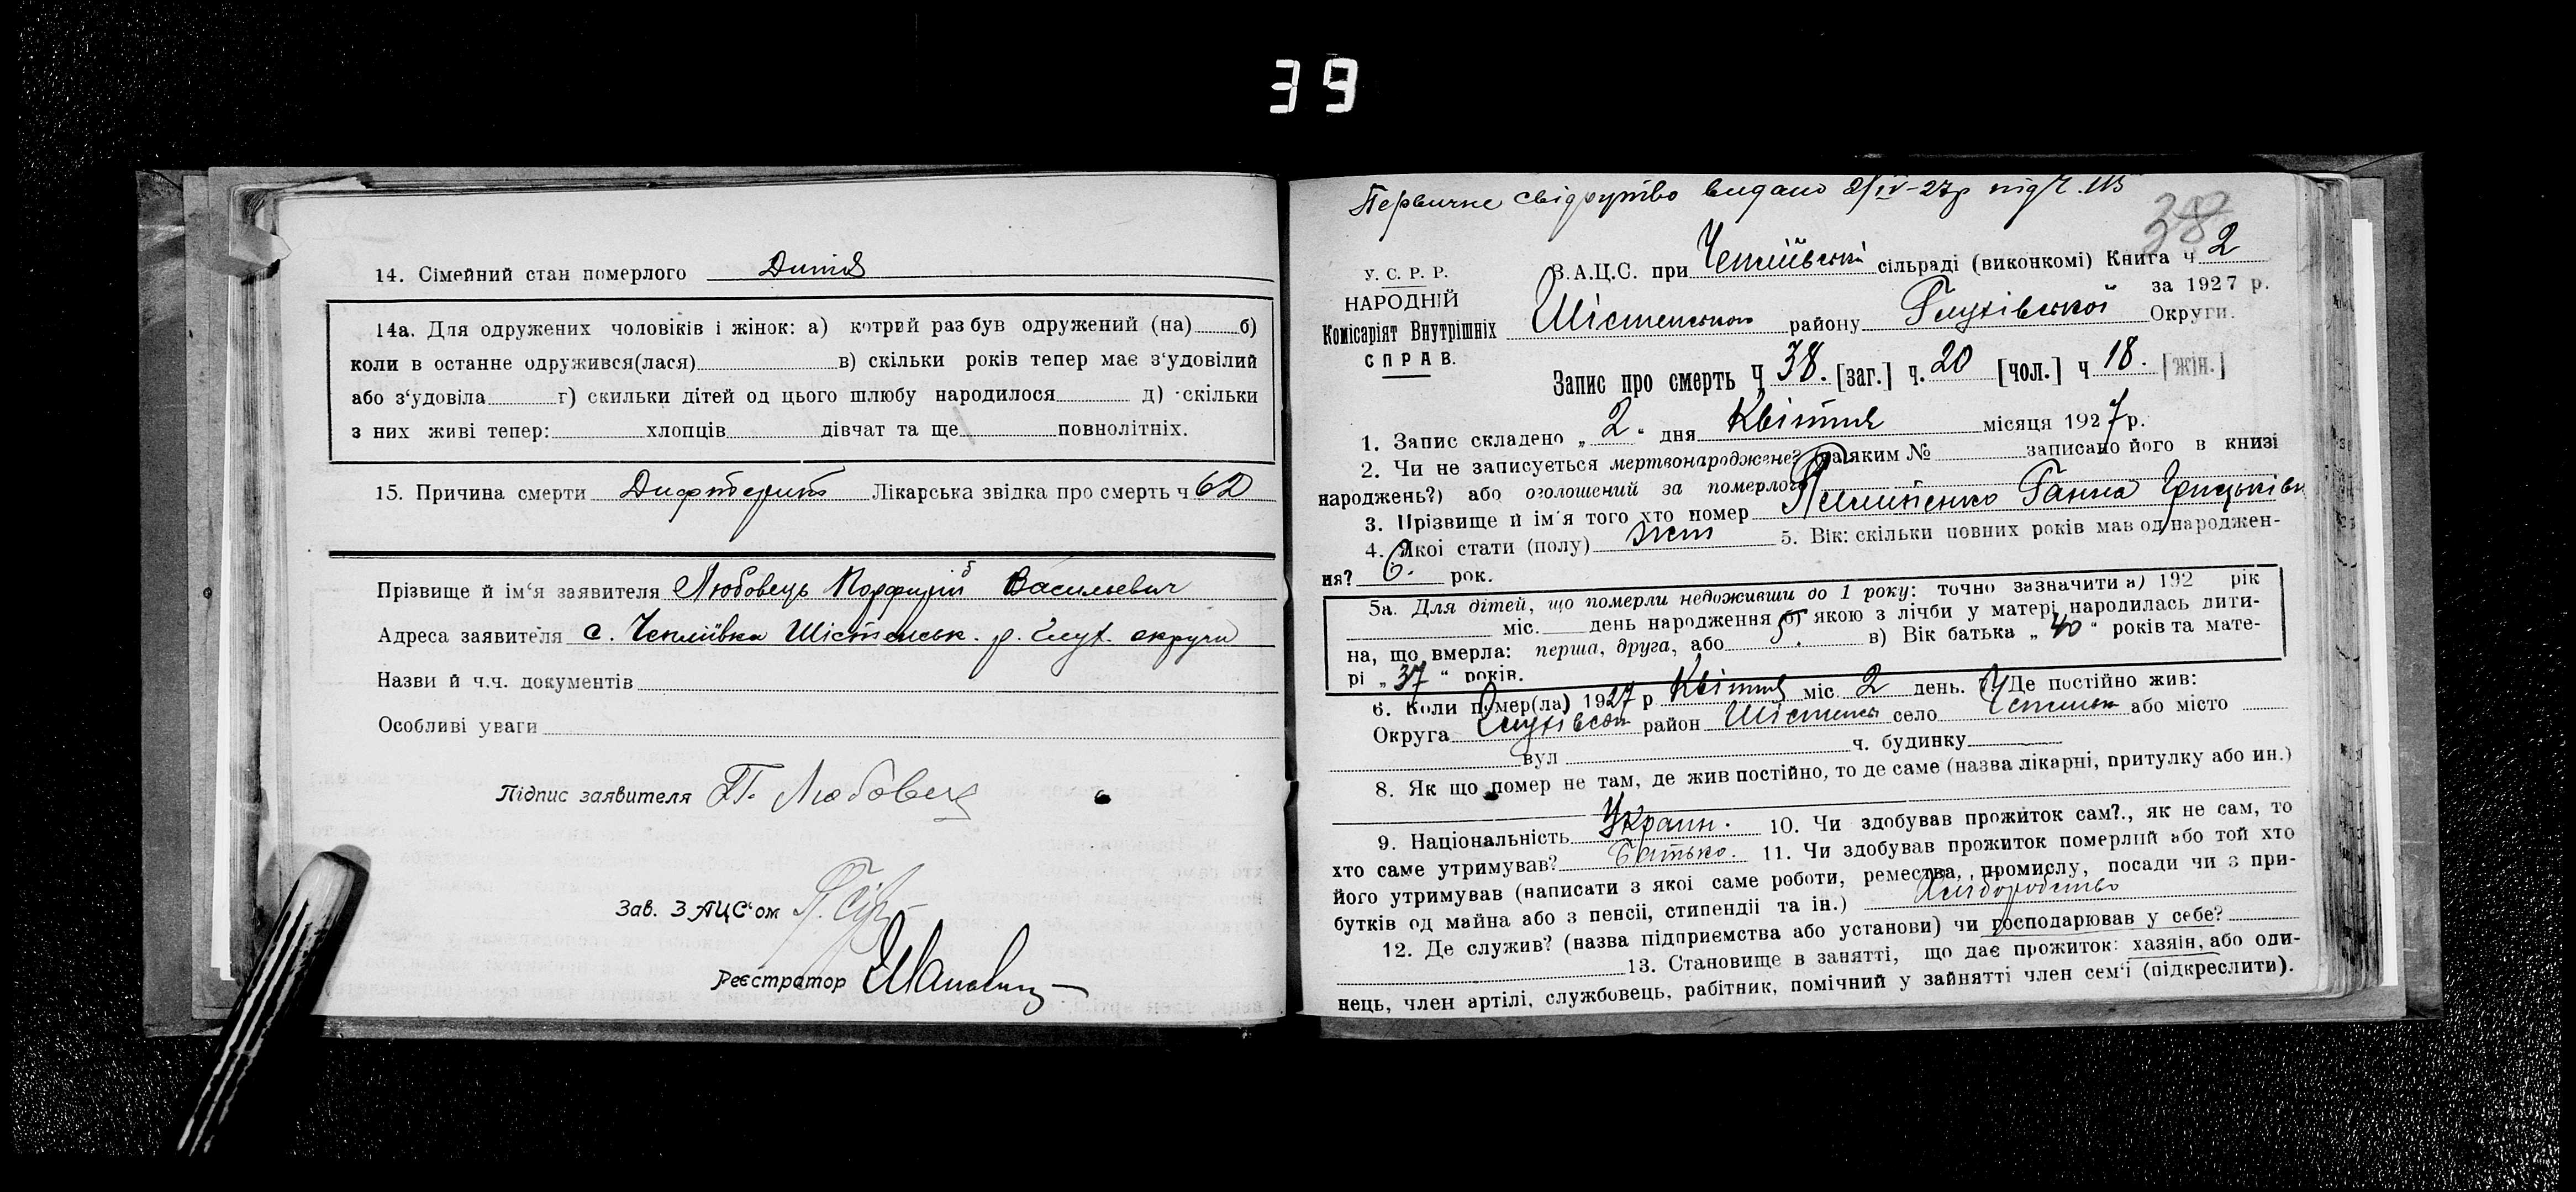 39
14. Сімейний стан померлого Дитя
14а. Для одружених чоловіків і жінок: а) котрий раз був одружений (на) б)
коли в останне одружився(лася) в) скільки років тепер має з‘удовілий
або з‘удовіла г) скильки дітей од цього шлюбу народилося д) скільки
з них живі тепер: хлопців дівчат та ще повнолітніх.
15. Причина смерти Дифтерит Лікарська звідка про смерть ч 62
Прізвище й ім‘я заявителя Любовець Порфирій Васильевич
Адреса заявителя с. Чепліївка Шістенськ. р. Глух. округи
Назви й ч.ч. документів
Особливі уваги
Підпис заявителя П. Любовец
Зав. ЗАЦС‘ом
Реєстратор
Первичне свідоцтво видано 2/IV-27р під Ч. 115
38
У. С. Р. Р.
НАРОДНІЙ
Комісаріят Внутрішніх
СПРАВ.
З.А.Ц.С. при Чепліївській сільраді (виконкомі) Книга ч 2
за 1927 р.
Шістенського району Глухівської Округи.
Запис про смерть Ч 38. [заг.] ч. 20 [чол.] ч 18. [жін.]
1. Запис складено „ 2 “ дня Квітня місяця 1927 р.
2. Чи не записуеться мертвонароджене? (за яким № записано його в книзі
народжень?) або оголошений за померлого
3. Прізвище й ім‘я того хто помер Ганна Грицьківн
4. Якоі стати (полу) жен 5. Вік: скільки повних років мав од народжен-
ня? 6. рок.
5а. Для дітей, що померли недоживши до 1 року: точно зазначити а) 192 рік
міс. день народження б) якою з лічби у матері народилась дити-
на, що вмерла: перша, друга, або 5. в) Вік батька „ 40 “ років та мате-
рі „ 37 “ років.
6. Коли помер(ла) 1927 р Квітня міс. 2 день. 7 Де постійно жив:
Округа Глухівськ район Шістенс село або місто
вул ч. будинку
8. Як що помер не там, де жив постійно, то де саме (назва лікарні, притулку або ин.)
9. Національність Украин. 10. Чи здобував прожиток сам?., як не сам, то
хто саме утримував? Батько. 11. Чи здобував прожиток померлий або той хто
його утримував (написати з якоі саме роботи, ремества, промислу, посади чи з при-
бутків од майна або з пенсіі, стипендіі та ін.) Хліборобство
12. Де служив? (назва підприемства або установи) чи господарював у себе?
13. Становище в занятті, що дає прожиток: хазяін, або оди-
нець, член артілі, службовець, рабітник, помічний у зайнятті член сем‘і (підкреслити).